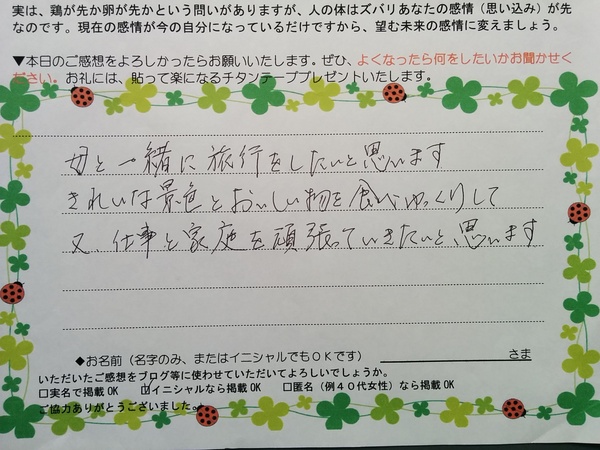 実は、鶏が先か卵が先かという問いがありますが、人の体はズバリあなたの感情（思い込み）が先
なのです。現在の感情が今の自分になっているだけですから、望む未来の感情に変えましょう。
▼本日のご感想をよろしかったらお願いいたします。ぜひ、よくなったら何をしたいかお聞かせく
ださい。お礼には、貼って楽になるチタンテーププレゼントいたします。
母と一緒に旅行をしたいと思います
きれいな景色とおいしい物を食べゆっくりして
又、仕事と家庭を頑張っていきたいと思います
◆お名前（名字のみ、またはイニシャルでもＯＫです） さま
いただいたご感想をブログ等に使わせていただいてよろしいでしょうか。
□実名で掲載 OK ☑イニシャルなら掲載 OK □匿名（例４０代女性）なら掲載 OK
ご協力ありがとうございました。